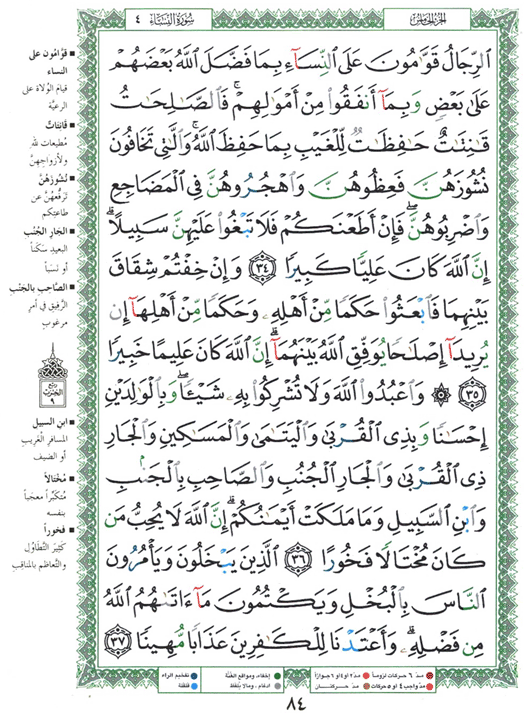 الجزء الخامس
سورة النساء ٤
الرِّجَالُ قَوَّٰمُونَ عَلَى النِّسَآءِ بِمَا فَضَّلَ اللَّهُ بَعْضَهُمْ
عَلَىٰ بَعْضٍ وَبِمَآ أَنفَقُوا۟ مِنْ أَمْوَٰلِهِمْ ۚ فَالصَّٰلِحَٰتُ
قَٰنِتَٰتٌ حَٰفِظَٰتٌ لِّلْغَيْبِ بِمَا حَفِظَ اللَّهُ ۚ وَالَّٰتِى تَخَافُونَ
نُشُوزَهُنَّ فَعِظُوهُنَّ وَاهْجُرُوهُنَّ فِى الْمَضَاجِعِ
وَاضْرِبُوهُنَّ ۖ فَإِنْ أَطَعْنَكُمْ فَلَا تَبْغُوا۟ عَلَيْهِنَّ سَبِيلًا ۗ
إِنَّ اللَّهَ كَانَ عَلِيًّا كَبِيرًا ٣٤ وَإِنْ خِفْتُمْ شِقَاقَ
بَيْنِهِمَا فَابْعَثُوا۟ حَكَمًا مِّنْ أَهْلِهِۦ وَحَكَمًا مِّنْ أَهْلِهَآ إِن
يُرِيدَآ إِصْلَٰحًا يُوَفِّقِ اللَّهُ بَيْنَهُمَآ ۗ إِنَّ اللَّهَ كَانَ عَلِيمًا خَبِيرًا
٣٥ ۞ وَاعْبُدُوا۟ اللَّهَ وَلَا تُشْرِكُوا۟ بِهِۦ شَيْـًٔا ۖ وَبِالْوَٰلِدَيْنِ
إِحْسَٰنًا وَبِذِى الْقُرْبَىٰ وَالْيَتَٰمَىٰ وَالْمَسَٰكِينِ وَالْجَارِ
ذِى الْقُرْبَىٰ وَالْجَارِ الْجُنُبِ وَالصَّاحِبِ بِالْجَنۢبِ
وَابْنِ السَّبِيلِ وَمَا مَلَكَتْ أَيْمَٰنُكُمْ ۗ إِنَّ اللَّهَ لَا يُحِبُّ مَن
كَانَ مُخْتَالًا فَخُورًا ٣٦ الَّذِينَ يَبْخَلُونَ وَيَأْمُرُونَ
النَّاسَ بِالْبُخْلِ وَيَكْتُمُونَ مَآ ءَاتَىٰهُمُ اللَّهُ
مِن فَضْلِهِۦ ۗ وَأَعْتَدْنَا لِلْكَٰفِرِينَ عَذَابًا مُّهِينًا ٣٧
قوّامون على
النساء
قيام الولاة على
الرعيّة
قانتات
مُطيعات لله
ولأزواجهنّ
نُشوزَهنّ
ترفّعهُنّ عن
طاعتكم
الجار الجُنُب
البعيد سَكناً
أو نسَباً
الصاحب بالجَنْب
الرّفيق في أمرٍ
مرغوب
ربع
الحزب
٩
ابن السبيل
المسافر الغريب
أو الضيف
مُختالاً
مُتكبّراً معجباً
بنفسه
فخوراً
كثيرَ التّطاوُل
والتّعاظم بالمناقب
مدّ ٦ حركات لزوماً
مدّ ٢ أو ٤ أو ٦ جوازاً
إخفاء، ومواقع الغُنَّة
تفخيم الراء
مدّ واجب ٤ أو ٥ حركات
مدّ حركتان
ادغام، وما لا يُلفظ
قلقلة
٨٤